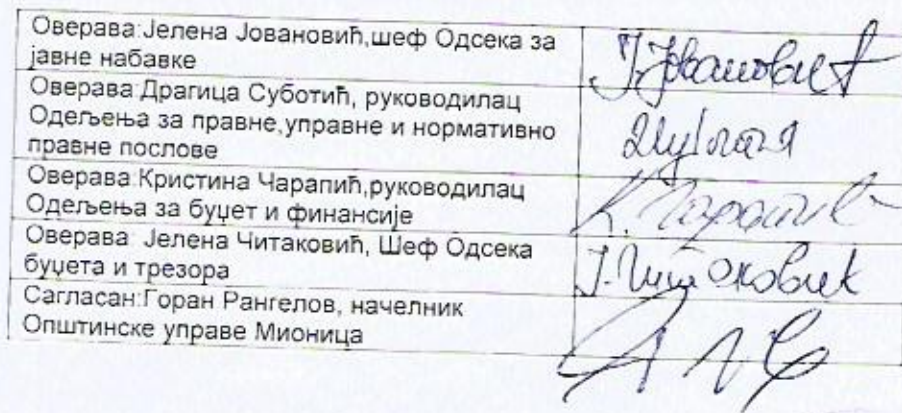 Оверава:Јелена Јовановић,шеф Одсека за
јавне набавке
Ј.Јовановић
Оверава:Драгица Суботић, руководилац
Одељења за правне,управне и нормативно
правне послове
Оверава:Кристина Чарапић,руководилац
Одељења за буџет и финансије
К. Чарапић
Оверава: Јелена Читаковић, Шеф Одсека
буџета и трезора
Ј. Читаковић
Сагласан:Горан Рангелов, начелник
Општинске управе Мионица